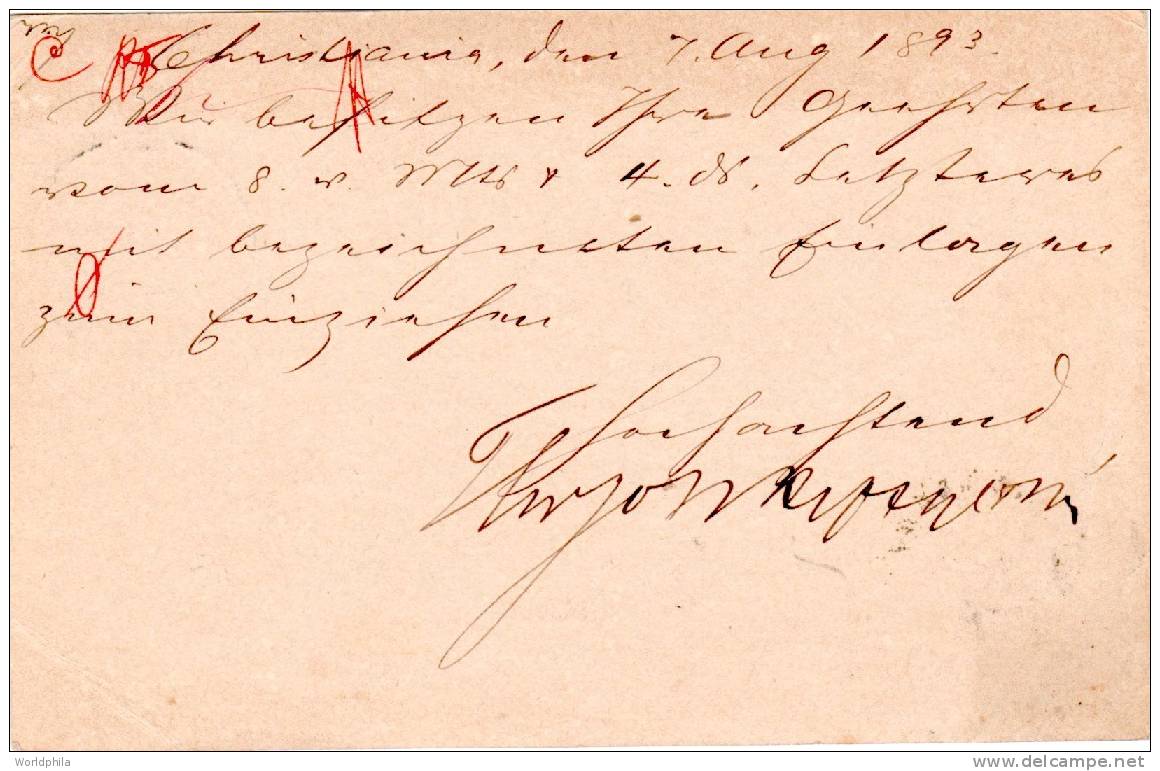 Christiania, den 7. Aug 1893.
Wir besitzen Ihre Geehrten
vom 8. v. Mts & 4. ds. Letzteres
mit bezeichneten Einlagen
zum Einziehen
Hochachtend
Worldphila
www.delcampe.net